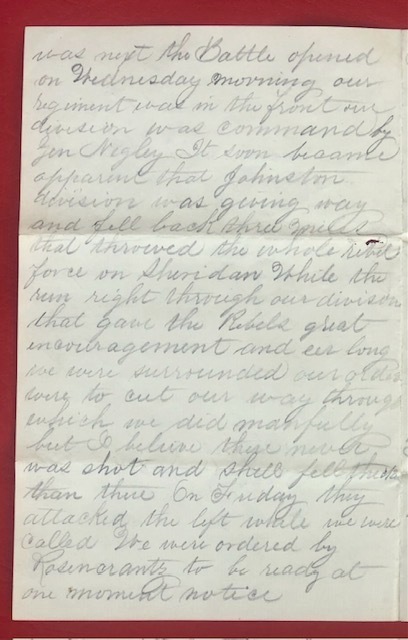 was next the Battle opened
on Wednesday morning our
regiment was in the front our
division was command by
Gen Negley It soon became
apparent that Johnston
division was giving way
and fell back three miles
that throwed the whole rebel
force on Sheridan While the
run right through our division
that gave the Rebels great
encouragement and eer long
we were surrounded our orders
were to cut our way through
which we did manfully
but I believe there never
was shot and shell fell thicker
than there On Friday they
attacked the left while we were
called We were ordered by
Rosencrantz to be ready at
one moment notice